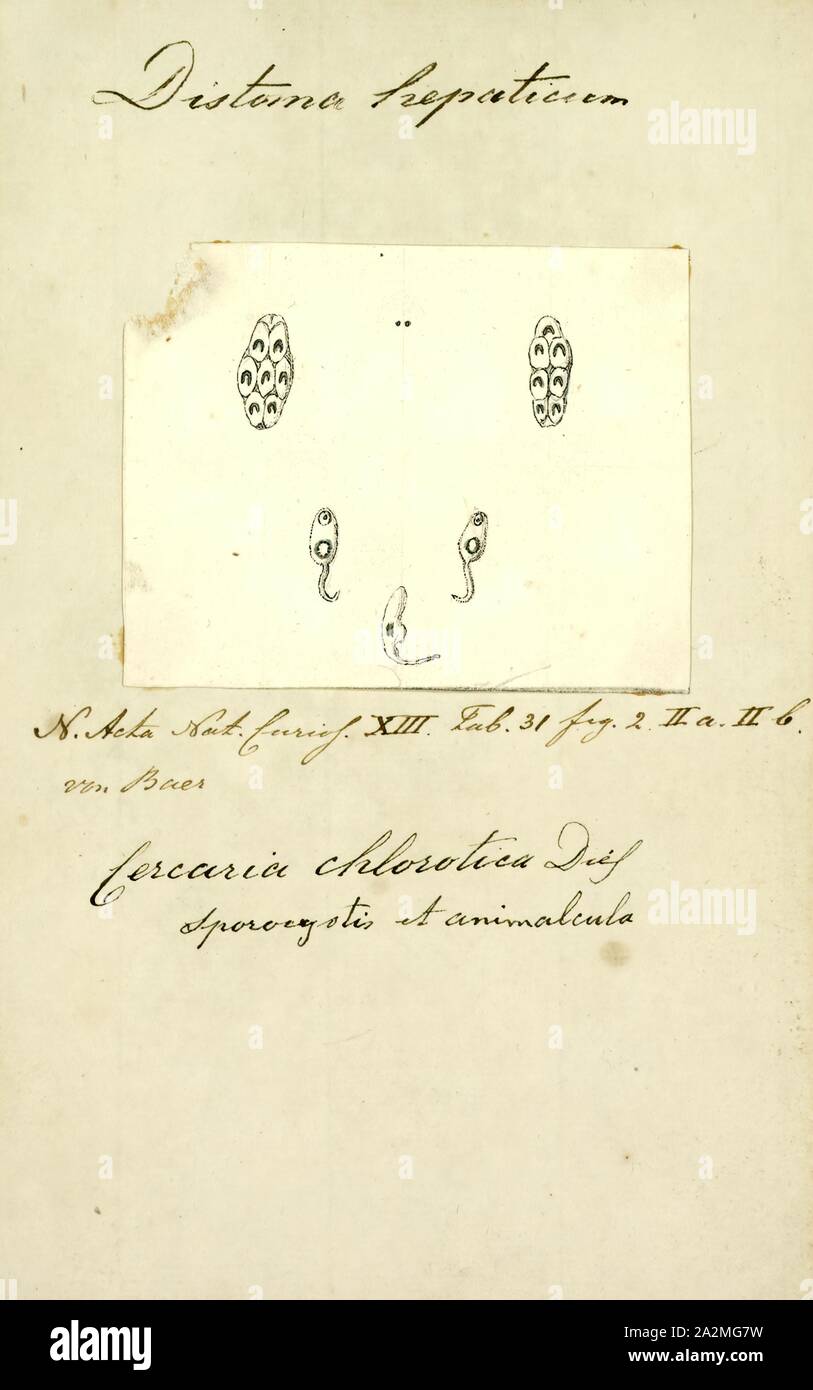 Distoma hepaticum
alamy
N. Acta Nat. Curios. XIII. Tab. 31 fig. 2. II a. II b.
von Baer
Cercaria chlorotica Dies
Sporocystis et animalcula
alamy
alamy
Image ID: A2MG7W
www.alamy.com